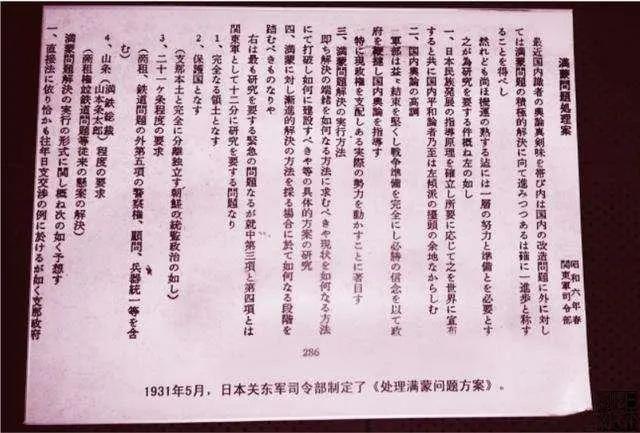 満蒙問題処理案
昭和六年春
関東軍司令部
最近国内識者の輿論真剣味を帯び内は国内の改造問題に外に対し
ては満蒙問題の積極的解決に向て進みつつあるは確に一進歩と称す
ることを得べし
然れども尚ほ機運の熟する迄には一層の努力と準備とを必要とす
之が為研究を要する件概ね左の如し
一、日本民族発展の指導原理を確立し所要に応じて之を世界に宣布
すると共に国内平和論者乃至は左傾派の擡頭の余地なからしむ
二、国内輿論の高調
軍部は益々結束を緊くし戦争準備を完全にし必勝の信念を以て政
府を鞭撻し国内輿論を指導す
特に現政権を支配しある実際の勢力を動かすことに著目す
三、満蒙問題解決の実行方法
即ち解決の端緒を如何なる方法に求むべきや現状を如何なる方法
にて打破し如何に建設すべきや等の具体的方案の研究
四、満蒙に対し漸進的解決の方法を採る場合に於て如何なる段階を
踏むべきものなりや
右は最も研究を要する緊急の問題なるが就中第三項と第四項とは
関東軍として十二分に研究を要する問題なり
1、完全なる領土となす
2、保護国となす
（支那本土と完全に分離独立す朝鮮の統監政治の如し）
3、二十一ケ条程度の要求
（商租、鉄道問題の外第五項の警察権、顧問、兵器統一等を含
む）
4、山条（満鉄総裁山本条太郎）程度の要求
（商租権並鉄道問題等従来の懸案の解決）
満蒙問題解決の実行の形式に関し概ね次の如く予想す
一、直接法に依り恰かも往年日支交渉の例に於けるが如く支那政府
286
1931年5月，日本关东军司令部制定了《处理满蒙问题方案》。